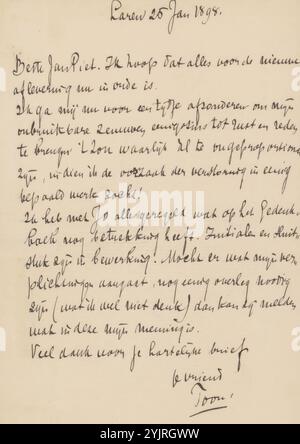 Laren 25 Jan 1898.
Beste Jan Piet. Ik hoop dat alles voor de nieuwe
aflevering nu in orde is.
Ik ga mij nu voor een tijdje afzonderen om mijn
onbruikbare zenuwen eenigszins tot rust en rede
te brengen 't Zou waarlijk al te ongeproportioneerd
zijn, indien ik de oorzaak der verstoring in eenig
bepaald werk zocht!
Ik heb met Jo alles geregeld wat op het Gedenk-
boek nog betrekking heeft. Initialen en sluit-
stuk zijn in bewerking! Mocht er wat mijn ver-
plichtingen aangaat, nog eenig overleg noodig
zijn (wat ik wel niet denk) dan kan zij melden
wat in deze mijn meening is.
Veel dank voor je hartelijke brief
je vriend
Toon.
alamy
Image ID: 2YJRGWW
www.alamy.com